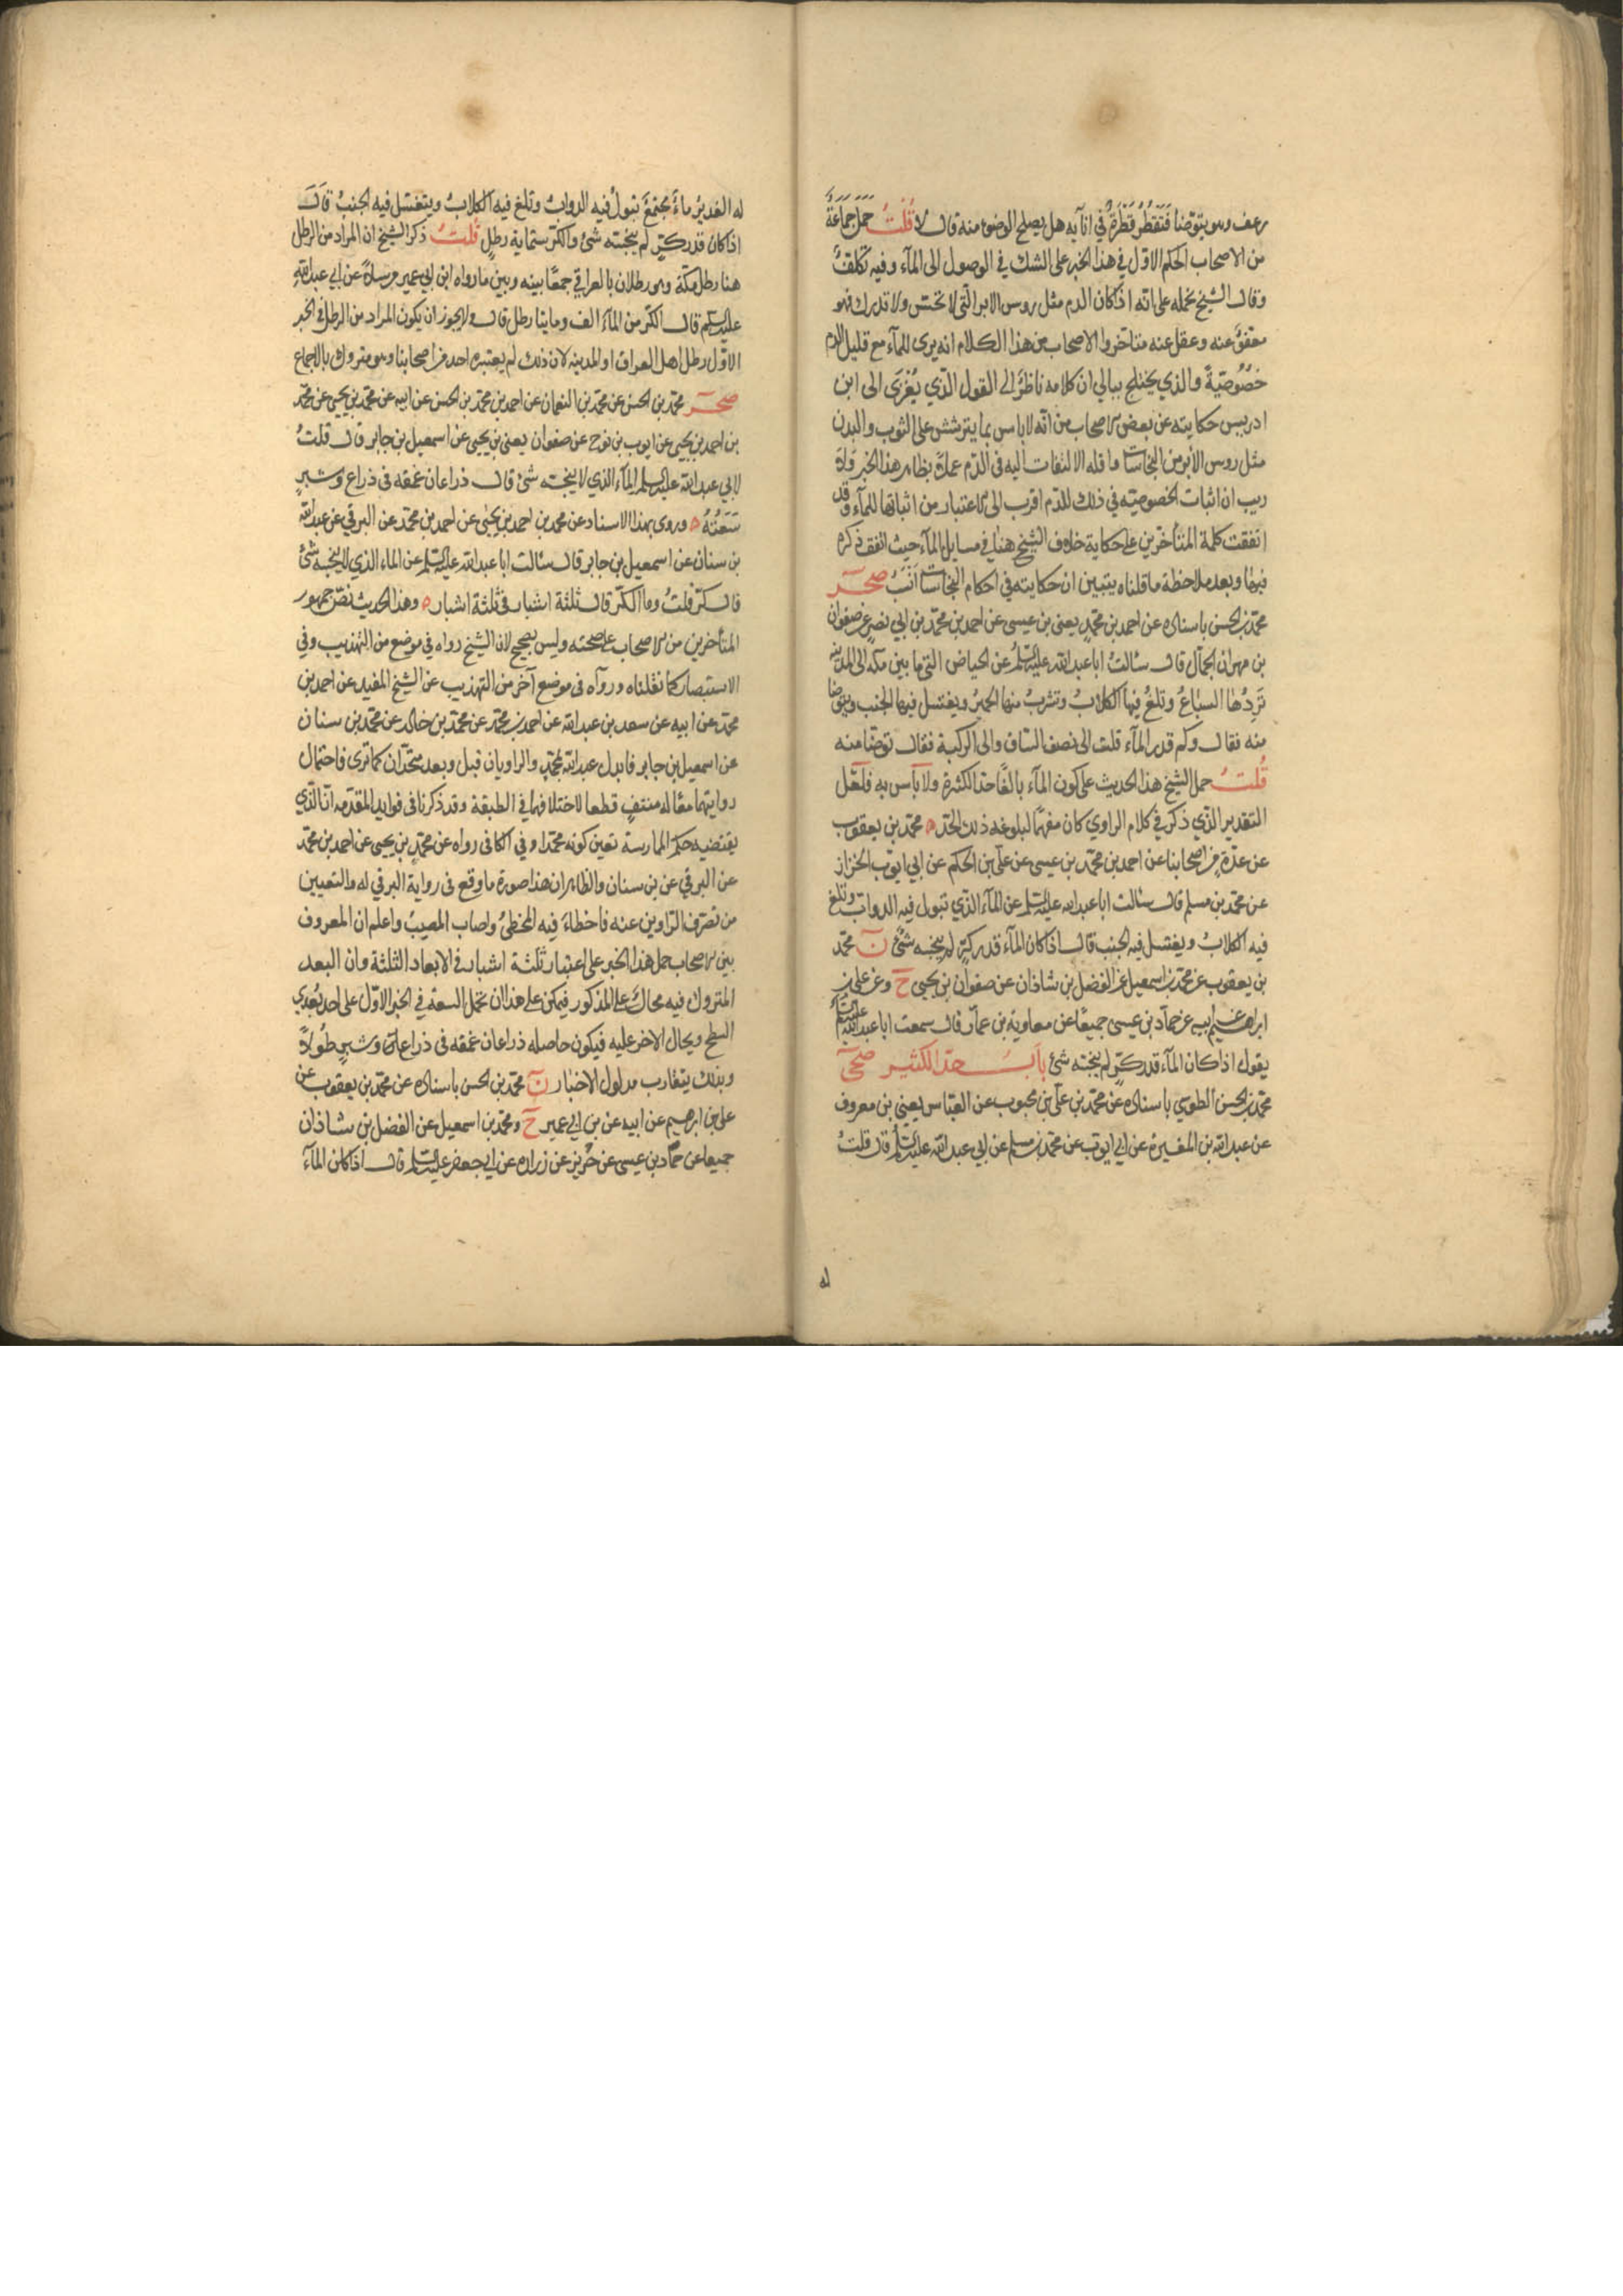 رعف وهو يتوضأ فَتَقطُرُ قَطْرَةٌ في انآيه هل يصلح الوضوء منه قال لا قُلْتُ حَمَلَ جَمَاعَةٌ
من الاصحاب الحكم الاوّل في هذا الخبر على الشك في الوصول الى المآء وفيه تكلفٌ
وقال الشيخ نحمله على انّه اذا كان الدم مثل روس الابر التّي لا تحسّ ولا تدرك فهو
معفوّ عنه وعقل عنه متاخروا الاصحاب من هذا الكلام انه يرى للمآء مع قليل الدم
خصُوصيّةً والذي يختلج ببالي ان كلامه ناظرٌ الى القول الذّي يُعْزَى الى ابن
ادريس حكايته عن بعض الاصحاب من انّه لا باس بما يترشش على الثوب والبدن
مثل روس الأبر من النجاسات وما قله الالتفات اليه في الدّم عملاً بظاهر هذا الخبر ولا
ريب ان اثبات الخصوصيّه في ذلك للدّم اقرب الى الاعتبار من اثباتها للمآء وقد
اتفقت كلمة المتأخرين على حكاية خلاف الشيخ هنا في مسايل المآء حيث اتفق ذكره
فيها وبعد ملاحظة ما قلناه يتبين ان حكايته في احكام النجاسات انسبُ صحر
محمّد بن الحسن باسناده عن احمد بن محمّدٍ يعنى بن عيسى عن احمد بن محمّد بن ابي نصرٍ عن صفوان
بن مهران الجمّال قال سئالتُ ابا عبد الله عليه السّلمُ عن الحياض التّي ما بين مكه الى المدينه
تَرِدُها السباعُ وتلغُ فيها الكلابُ وتشربُ منها الحميرُ ويغتسل فيها الجنب ويتوضا
منه فقال وكم قدر المآء قلت الى نصف السّاق والى الركبة فقال توضّأ منه
قُلتُ حمل الشيخ هذا الحديث على كون المآء بالغًا حدّ الكثرة ولا بأس به فلعّل
التقدير الذّي ذكر في كلام الراوي كان مفهمًا لبلوغه ذلك الحدّ ه محمّد بن يعقوب
عن عدّةٍ من اصحابنا عن احمد بن محمّد بن عيسى عن علّى بن الحكم عن ابي ايّوب الخزاز
عن محمّد بن مسلم قال سئالت ابا عبد الله عليه السّلم عن المآء الذّي تبول فيه الدوابّ وتلغ
فيه الكلابُ ويغتسل فيه الجنب قال اذا كان المآء قدر كرّ لم ينجسه شئٌ ن محمّد
بن يعقوب عن محمّد بن اسمعيل عن الفضل بن شاذان عن صفوان بن يحيى ح وعن على بن
ابراهيم عن ابيه عن حمّاد بن عيسى جميعًا عن معاوية بن عمّار قال سمعت ابا عبد الله عليه السّلمُ
يقول اذا كان المآء قدر كرّ لم ينجّسه شئ بابُ حدّ الكثير صحى
محمّد بن الحسن الطوسي باسناده عن محمّد بن علّى بن محبوب عن العبّاس يعني بن معروف
عن عبد الله بن المغيرة عن ابي ايّوب عن محمّد بن مسلم عن ابي عبد الله عليه السّلم قال قلتُ
له
له الغديرُ ماءٌ مجتمعٌ تبولُ فيه الدوابُ وتلغ فيه الكلابُ ويتغتسل فيه الجنبُ قالَ
اذا كان قدر كرّ لم ينجّسه شئ والكرّ ستماية رطلٍ قُلتُ ذكر الشيخ ان المراد من الرطل
هنا رطل مكّة وهو رطلان بالعراقي جمعًا بينه وبين ما رواه ابن ابي عمير مرسلاً عن ابي عبد الله
عليه السّلم قال الكرّ من المآء الف ومايتا رطل قال ولا يجوز ان يكون المراد من الرطل في الخبر
الاوّل رطل اهل العراق او المدينه لان ذلك لم يعتبره احد من اصحابنا وهو متروك بالاجماع
صحر محمّد بن الحسن عن محمّد بن النعمان عن احمد بن محمّد بن الحسن عن ابيه عن محمّد بن يحيى عن محمّد
بن احمد بن يحيى عن ايوب بن نوح عن صفوان يعنى بن يحيى عن اسمعيل بن جابر قال قلتُ
لابي عبد الله عليه السلم المآء الذي لا ينجّسه شئ قال ذراعان عُمقه في ذراع وشبرٍ
سَعَتُهُ ه وروى بهذا الاسناد عن محمد بن احمد بن يحيى عن احمد بن محمّد عن البرقي عن عبد الله
بن سنان عن اسمعيل بن جابر قال سئالت ابا عبد الله عليه السّلم عن الماء الذي لا ينجّسه شئ
قال كرّ قلتُ وما الكرّ قال ثلثة اشبار في ثلثة اشبار ه وهذا الحديث نصّ جمهور
المتأخرين من الاصحاب على صحّته وليس بصحيح لان الشيخ رواه في موضع من التهذيب وفي
الاستبصار كما نقلناه ورواه في موضع آخر من التهذيب عن الشيخ المفيد عن احمد بن
محمّد عن ابيه عن سعد بن عبد الله عن احمد بن محمّد عن محمّد بن خالد عن محمّد بن سنان
عن اسمعيل بن جابر فابدل عبد الله بمحمّدٍ والراويان قبل وبعد متّحدان كما ترى فاحتمال
روايتهما معًا له منتفٍ قطعا لاختلافهما في الطبقة وقد ذكرنا في فوايد المقدّمه انّ الذّي
يقتضيه حكم الممارسة تعين كونه محمّدا وفي الكافى رواه عن محمّد بن يحيى عن احمد بن محمّد
عن البرقي عن بن سنان والظاهر ان هذا صورة ما وقع في رواية البرقي له والتعيين
من تصرّف الرّاوين عنه فاخطاءَ فيه المخطئُ واصاب المصيبُ واعلم ان المعروف
بين الاصحاب حمل هذا الخبر على اعتبار ثلثة اشبار في الابعاد الثلثة وان البعد
المتروك فيه محالٌ على المذكور فيمكن على هذا ان تحمل السعة في الخبر الاوّل على احد بُعدي
السطح ويحال الاخر عليه فيكون حاصله ذراعان عُمقه في ذراعان وشبرٍ طُولاً
وبذلك يتقارب مدلول الاخبار ن محمّد بن الحسن باسناده عن محمّد بن يعقوب عن
على بن ابرهيم عن ابيه عن بن ابي عمير ح ومحمّد بن اسمعيل عن الفضل بن شاذان
جميعا عن حمّاد بن عيسى عن حُريز عن زراره عن ابى جعفر عليه السّلم قال اذا كان المآء